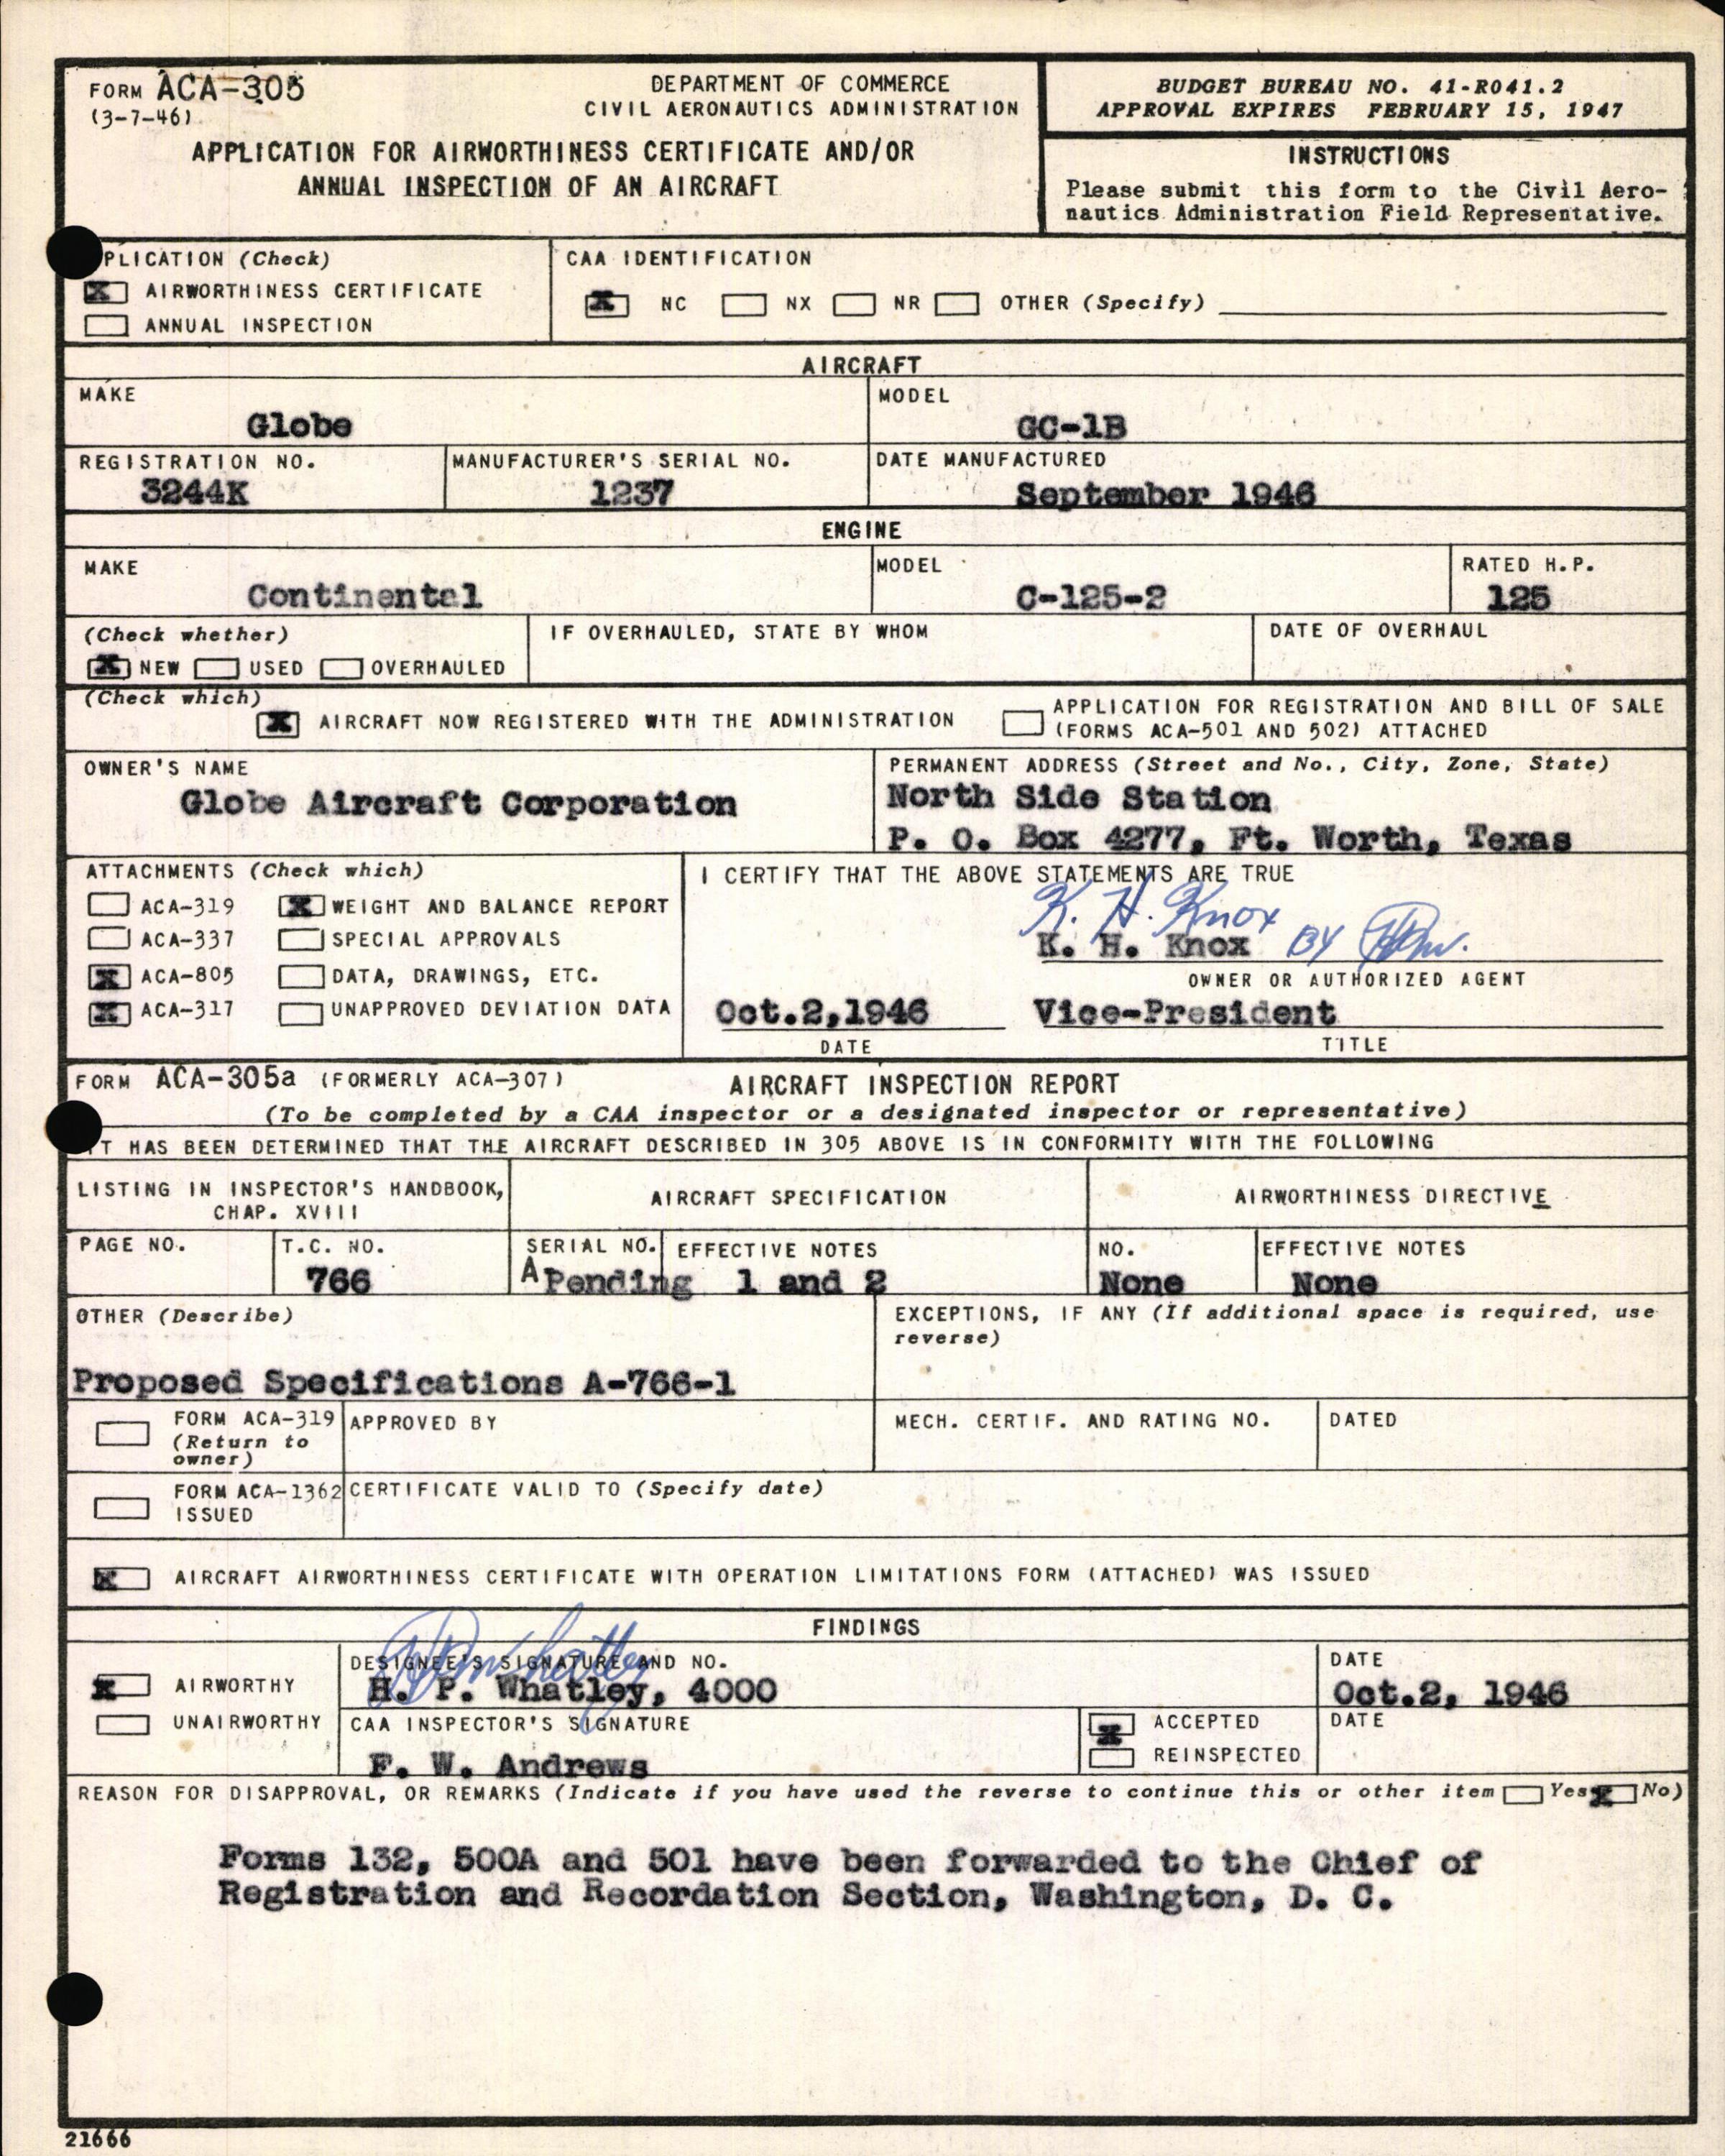 FORM ACA-305
(3-7-46)
DEPARTMENT OF COMMERCE
CIVIL AERONAUTICS ADMINISTRATION
APPLICATION FOR AIRWORTHINESS CERTIFICATE AND/OR
ANNUAL INSPECTION OF AN AIRCRAFT
BUDGET BUREAU NO. 41-R041.2
APPROVAL EXPIRES FEBRUARY 15, 1947
INSTRUCTIONS
Please submit this form to the Civil Aero-
nautics Administration Field Representative.
PLICATION (Check)
X AIRWORTHINESS CERTIFICATE
ANNUAL INSPECTION
CAA IDENTIFICATION
X NC NX NR OTHER (Specify)
AIRCRAFT
MAKE
Globe
MODEL
GC-1B
REGISTRATION NO.
3244K
MANUFACTURER'S SERIAL NO.
1237
DATE MANUFACTURED
September 1946
ENGINE
MAKE
Continental
MODEL
C-125-2
RATED H.P.
125
(Check whether)
X NEW USED OVERHAULED
IF OVERHAULED, STATE BY WHOM
DATE OF OVERHAUL
(Check which)
X AIRCRAFT NOW REGISTERED WITH THE ADMINISTRATION
APPLICATION FOR REGISTRATION AND BILL OF SALE
(FORMS ACA-501 AND 502) ATTACHED
OWNER'S NAME
Globe Aircraft Corporation
PERMANENT ADDRESS (Street and No., City, Zone, State)
North Side Station
P. O. Box 4277, Ft. Worth, Texas
ATTACHMENTS (Check which)
ACA-319 X WEIGHT AND BALANCE REPORT
ACA-337 SPECIAL APPROVALS
X ACA-805 DATA, DRAWINGS, ETC.
X ACA-317 UNAPPROVED DEVIATION DATA
I CERTIFY THAT THE ABOVE STATEMENTS ARE TRUE
K. H. Knox
K. H. Knox BY
OWNER OR AUTHORIZED AGENT
Oct.2,1946 Vice-President
DATE TITLE
FORM ACA-305a (FORMERLY ACA-307) AIRCRAFT INSPECTION REPORT
(To be completed by a CAA inspector or a designated inspector or representative)
IT HAS BEEN DETERMINED THAT THE AIRCRAFT DESCRIBED IN 305 ABOVE IS IN CONFORMITY WITH THE FOLLOWING
LISTING IN INSPECTOR'S HANDBOOK,
CHAP. XVIII
AIRCRAFT SPECIFICATION
AIRWORTHINESS DIRECTIVE
PAGE NO.
T.C. NO.
766
SERIAL NO.
A Pending
EFFECTIVE NOTES
1 and 2
NO.
None
EFFECTIVE NOTES
None
OTHER (Describe)
Proposed Specifications A-766-1
EXCEPTIONS, IF ANY (If additional space is required, use
reverse)
FORM ACA-319
(Return to
owner)
APPROVED BY
MECH. CERTIF. AND RATING NO.
DATED
FORM ACA-1362
ISSUED
CERTIFICATE VALID TO (Specify date)
X AIRCRAFT AIRWORTHINESS CERTIFICATE WITH OPERATION LIMITATIONS FORM (ATTACHED) WAS ISSUED
FINDINGS
X AIRWORTHY
UNAIRWORTHY
DESIGNEE'S SIGNATURE AND NO.
HP Whatley
H. P. Whatley, 4000
DATE
Oct.2, 1946
CAA INSPECTOR'S SIGNATURE
F. W. Andrews
X ACCEPTED
REINSPECTED
DATE
REASON FOR DISAPPROVAL, OR REMARKS (Indicate if you have used the reverse to continue this or other item Yes X No)
Forms 132, 500A and 501 have been forwarded to the Chief of
Registration and Recordation Section, Washington, D. C.
21666